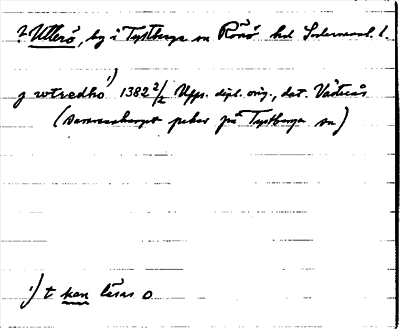 ? Ullerö, by i Tystberga sn Rönö hd Södermanl. l.
j wtredhο ¹) 1382 2/2 Upps. dipl. orig., dat. Västerås
( pekar på Tystberga sn)
¹) t kan läsas o